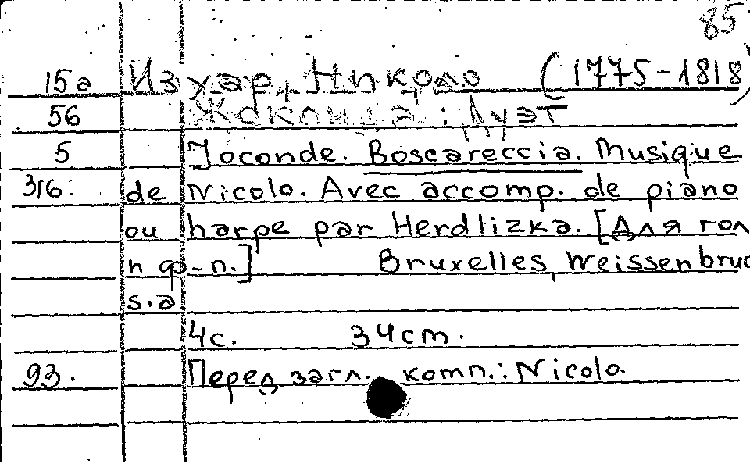 85
15а Изуар, Николо (1775-1818)
56 Жоконда: Дуэт
5 Joconde. Boscareccia. Musique
316. de Nicolo. Avec accomp. de piano
ou harpe par Herdlizka. [Для гол
и ф-п.] Bruxelles, Weissenbruc
s.a
4с. 34cm.
93. Перед загл. комп.: Nicolo.